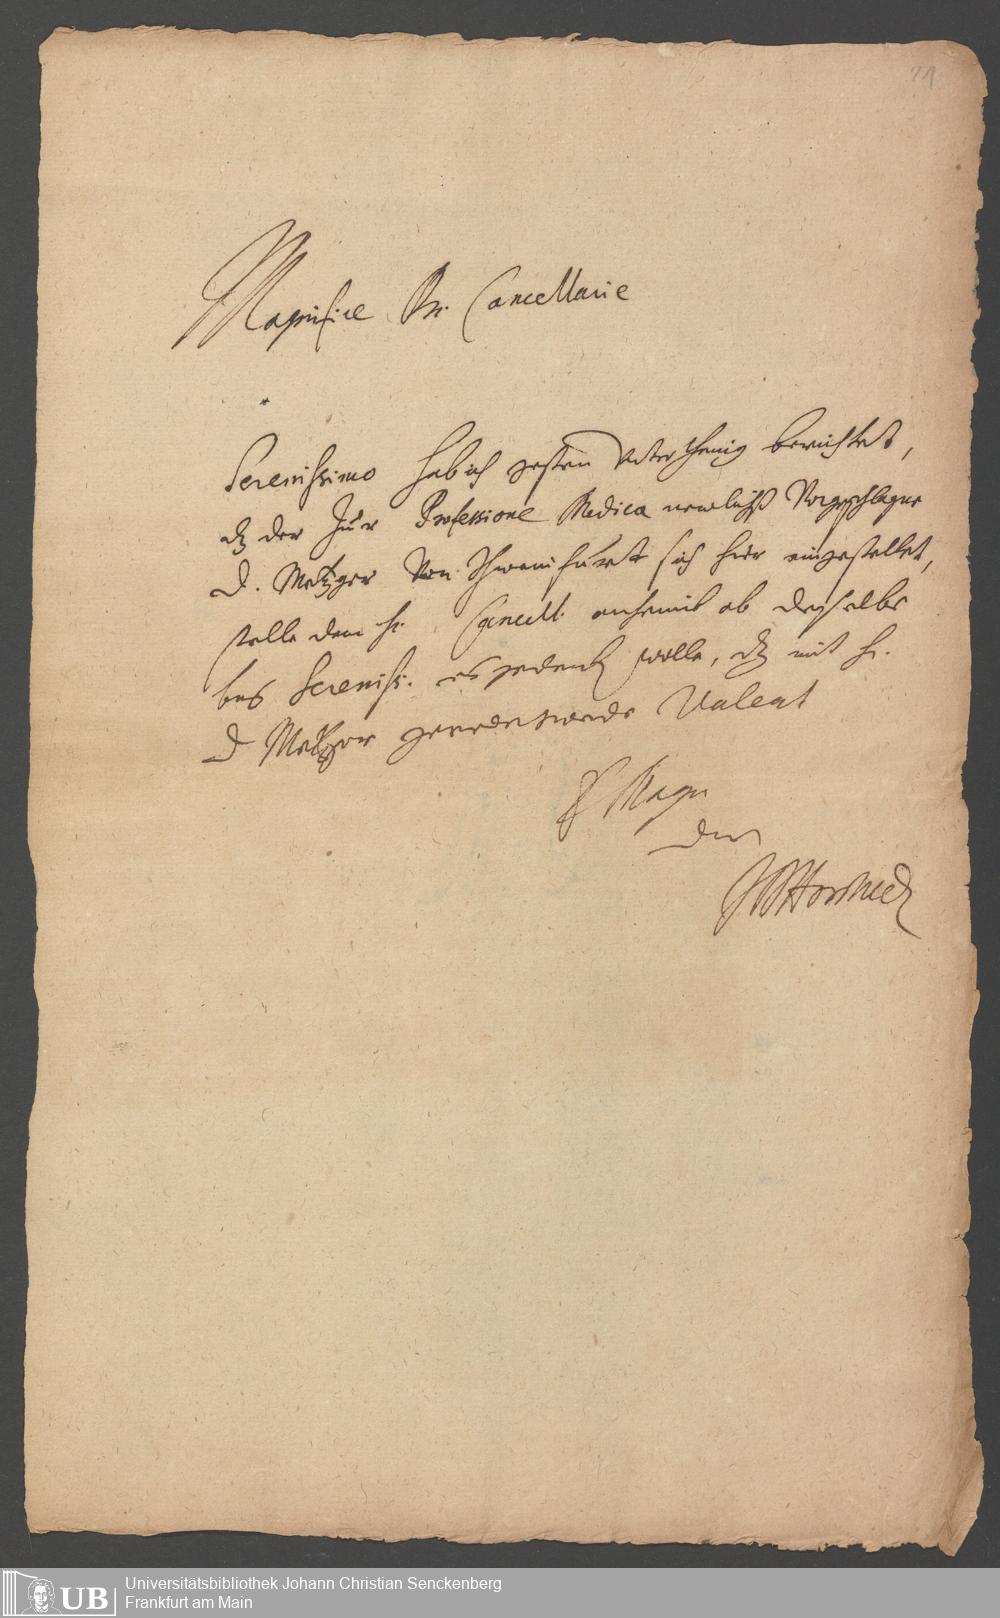 21
Magnifice Dn. Cancellarie
Serenissimo hab ich gestern Unterthenig berichtet,
dz der zur Professione Medica newlichst Vorgeschlagne
D. Metzger Von Schweinfurtt sich hier eingestellet,
stelle dem H. Cancell. anheimb ob derselbe
bey Sereniss. es gedenck wolle, dz mit H.
D Metzger geredet werde Valeat
E Magn
der
Universitätsbibliothek Johann Christian Senckenberg
Frankfurt am Main
UB